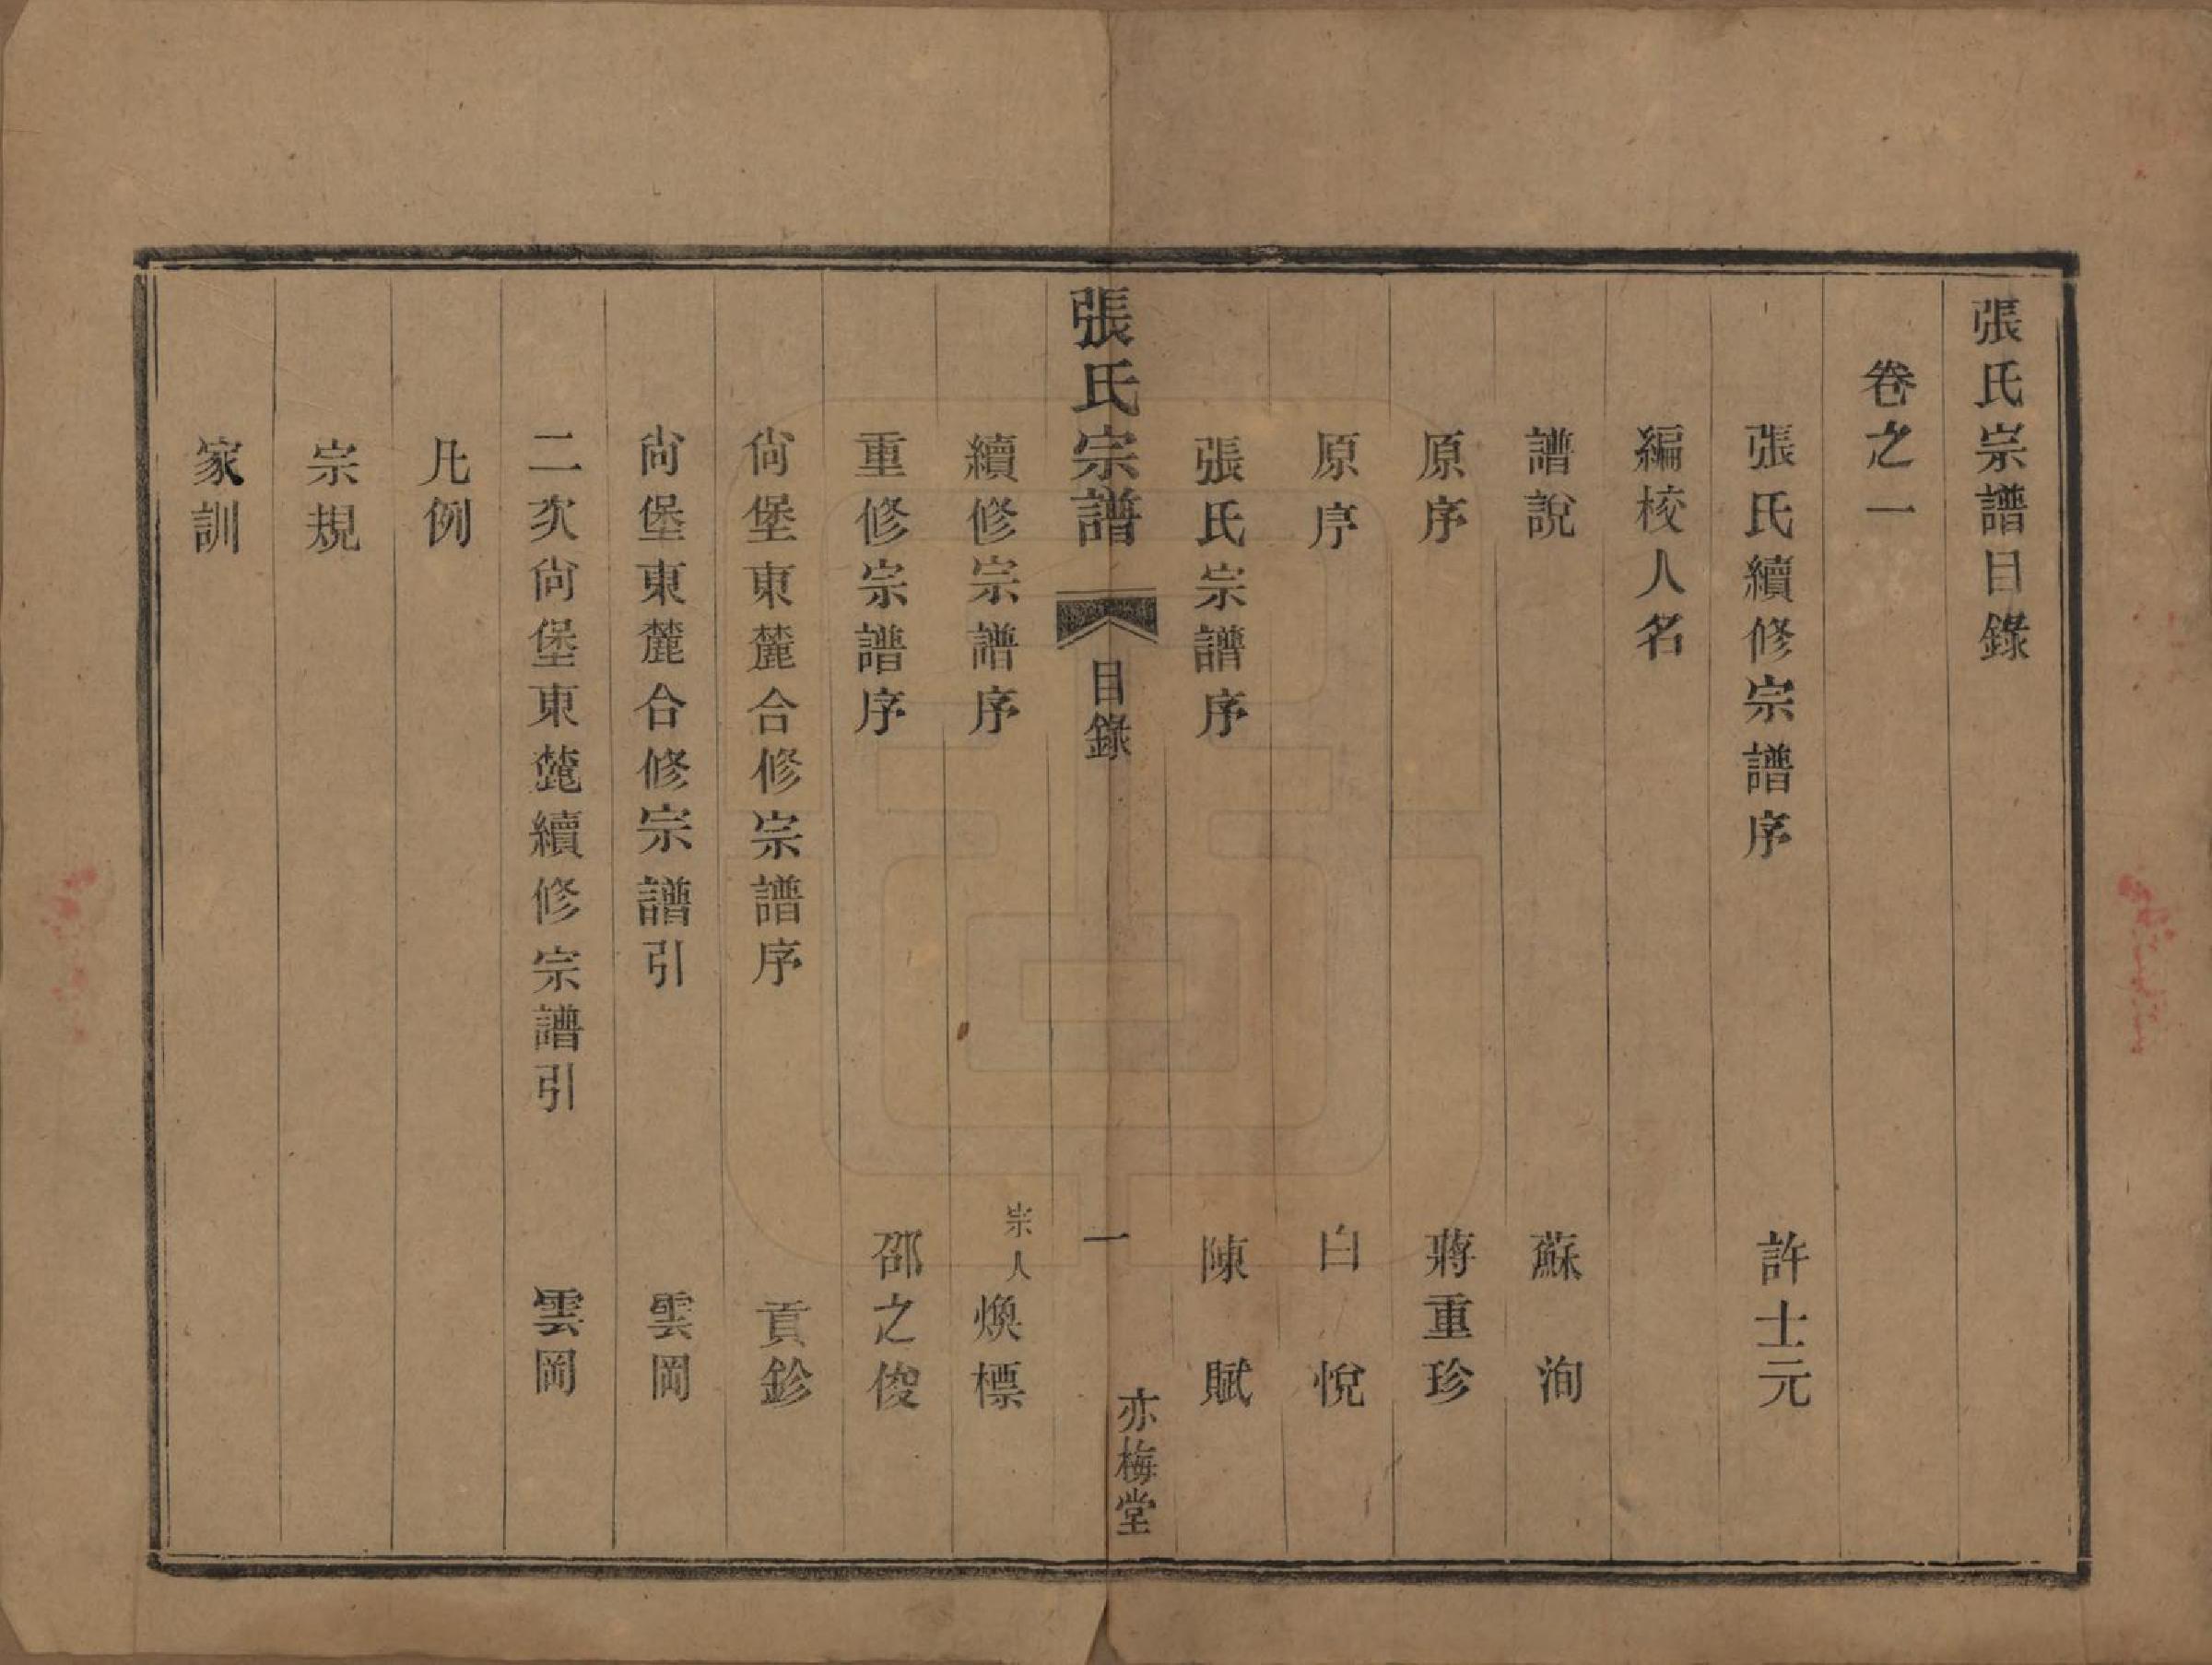 張氏宗譜目錄
卷之一
張氏續修宗譜序 許士元
編校人名
譜說 蘇洵
原序 蔣重珍
原序 白悅
張氏宗譜序 陳賦
張氏宗譜 目錄 一 亦梅堂
續修宗譜序 宗人煥標
重修宗譜序 邵之俊
尙堡東麓合修宗譜序 貢鉁
尙堡東麓合修宗譜引 雲岡
二次尙堡東麓續修宗譜引 雲岡
凡例
宗規
家訓